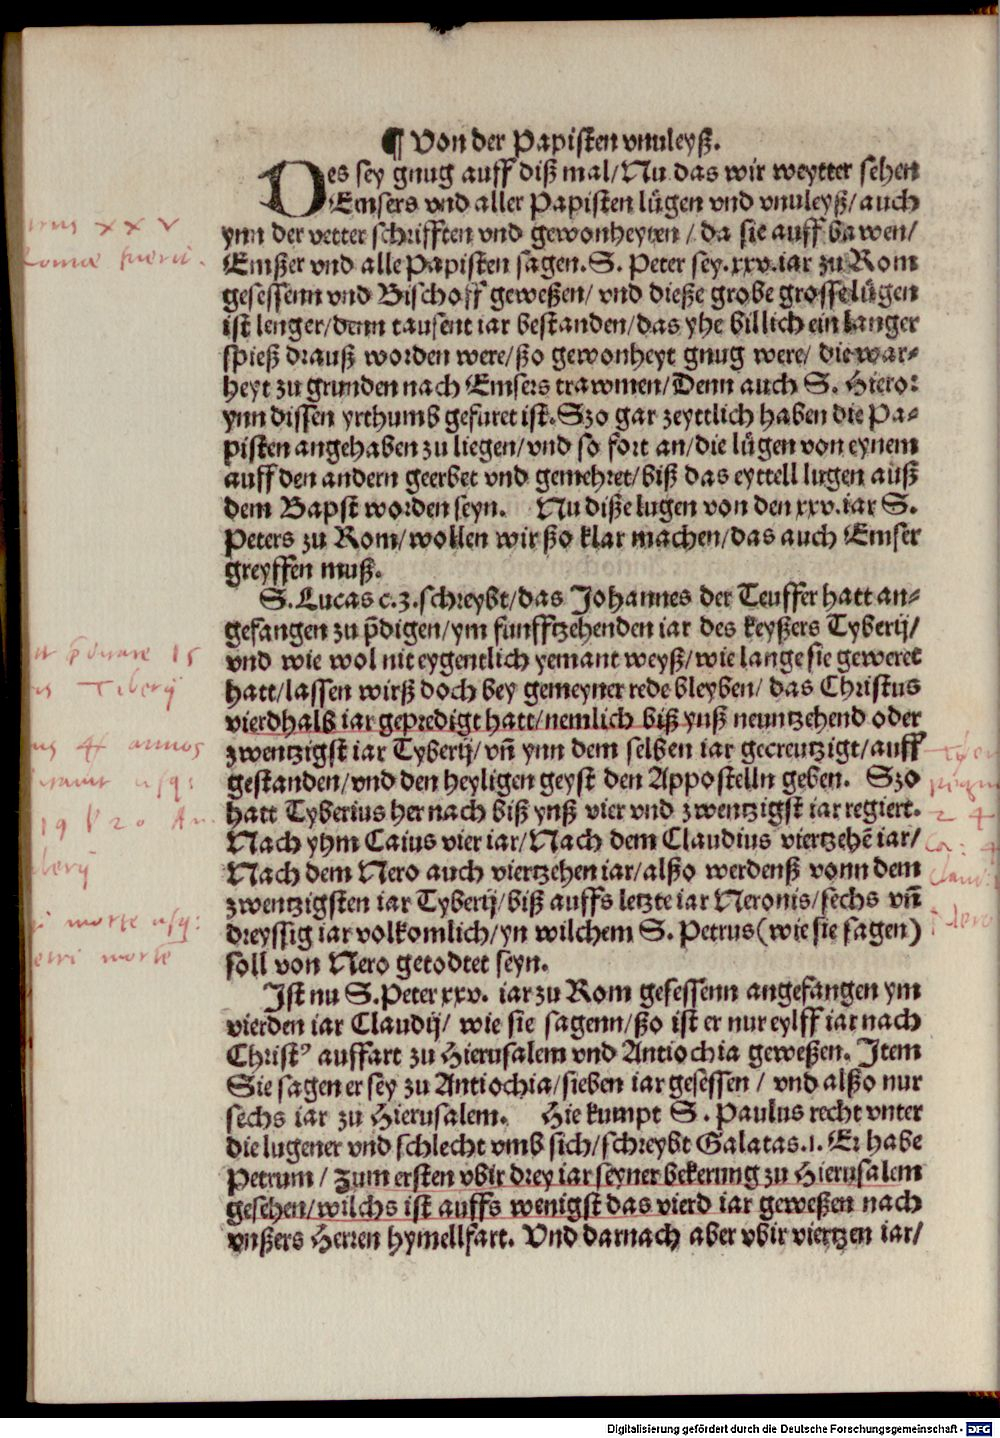 ¶ Von der Papisten vnuleyß.
Des sey gnug auff diß mal/Nu das wir weytter sehen
Emsers vnd aller Papisten lügen vnd vnuleyß/auch
ynn der vetter schrifften vnd gewonheyten/da sie auff bawen/
Emßer vnd alle Papisten sagen.S. Peter sey.xxv.iar zu Rom
gesessenn vnd Bischoff geweßen/ vnd dieße grobe grosse lügen
ist lenger/denn tausent iar bestanden/das yhe billich ein langer
spieß drauß worden were/ßo gewonheyt gnug were/ die war-
heyt zu grunden nach Emsers trawmen/Denn auch S. Hiero:
ynn dissen yrthumb gefuret ist.Szo gar zeyttlich haben die Pa-
pisten angehaben zu liegen/vnd so fort an/die lügen von eynem
auff den andern geerbet vnd gemehret/biß das eyttell lugen auß
dem Bapst worden seyn. Nu diße lugen von den xxv.iar S.
Peters zu Rom/wollen wir ßo klar machen/das auch Emser
greyffen muß.
S.Lucas c.3.schreybt/das Johannes der Teuffer hatt an-
gefangen zu p̄digen/ym funfftzehenden iar des keyßers Tyberij/
vnd wie wol nit eygentlich yemant weyß/wie lange sie geweret
hatt/lassen wirß doch bey gemeyner rede bleyben/ das Christus
vierdhalb iar gepredigt hatt/nemlich biß ynß neuntzehend oder
zwentzigst iar Tyberij/vñ ynn dem selben iar gecreutzigt/auff
gestanden/vnd den heyligen geyst den Appostelln geben. Szo
hatt Tyberius her nach biß ynß vier vnd zwentzigst iar regiert.
Nach yhm Caius vier iar/Nach dem Claudius viertzehē iar/
Nach dem Nero auch viertzehen iar/alßo werdenß vonn dem
zwentzigsten iar Tyberij/biß auffs letzte iar Neronis/sechs vñ
dreyssig iar volkomlich/yn wilchem S. Petrus(wie sie sagen)
soll von Nero getodtet seyn.
Ist nu S.Peter xxv. iar zu Rom gesessenn angefangen ym
vierden iar Claudij/ wie sie sagenn/ßo ist er nur eylff iar nach
Christ⁹ auffart zu Hierusalem vnd Antiochia geweßen. Item
Sie sagen er sey zu Antiochia/sieben iar gesessen / vnd alßo nur
sechs iar zu Hierusalem. Hie kumpt S . Paulus recht vnter
die lugener vnd schlecht vmb sich/schreybt Galatas.1. Er habe
Petrum / zum ersten vbir drey iar seyner bekerung zu Hierusalem
gesehen/wilchs ist auffs wenigst das vierd iar geweßen nach
vnßers Herren hymellfart. Vnd darnach aber vbir viertzen iar/
xxv
15
Tiberij
annos
19 20
morte
morte
24
Nero
Digitalisierung gefördert durch die Deutsche Forschungsgemeinschaft - DFG